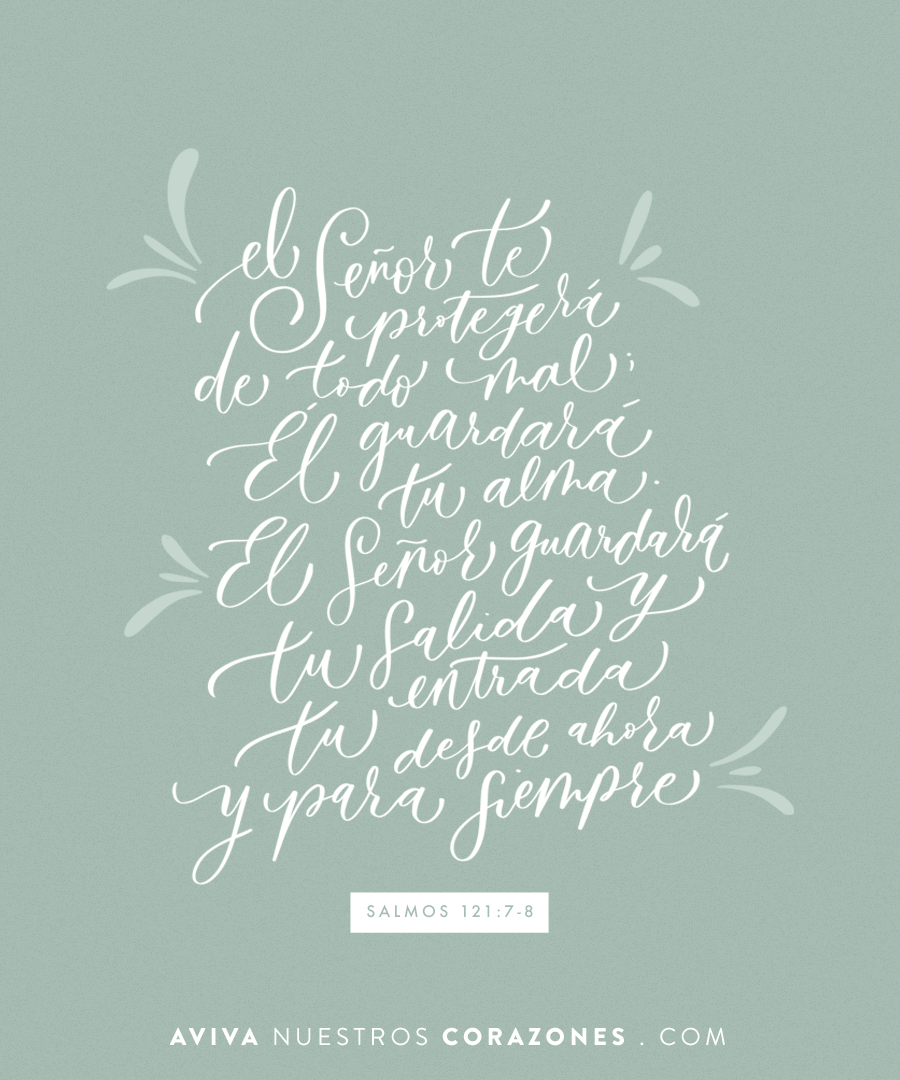 el Señor te
protegerá
de todo mal;
Él guardará
tu alma.
El Señor guardará
tu salida y
tu entrada
desde ahora
y para siempre
SALMOS 121:7-8
AVIVA NUESTROS CORAZONES . COM